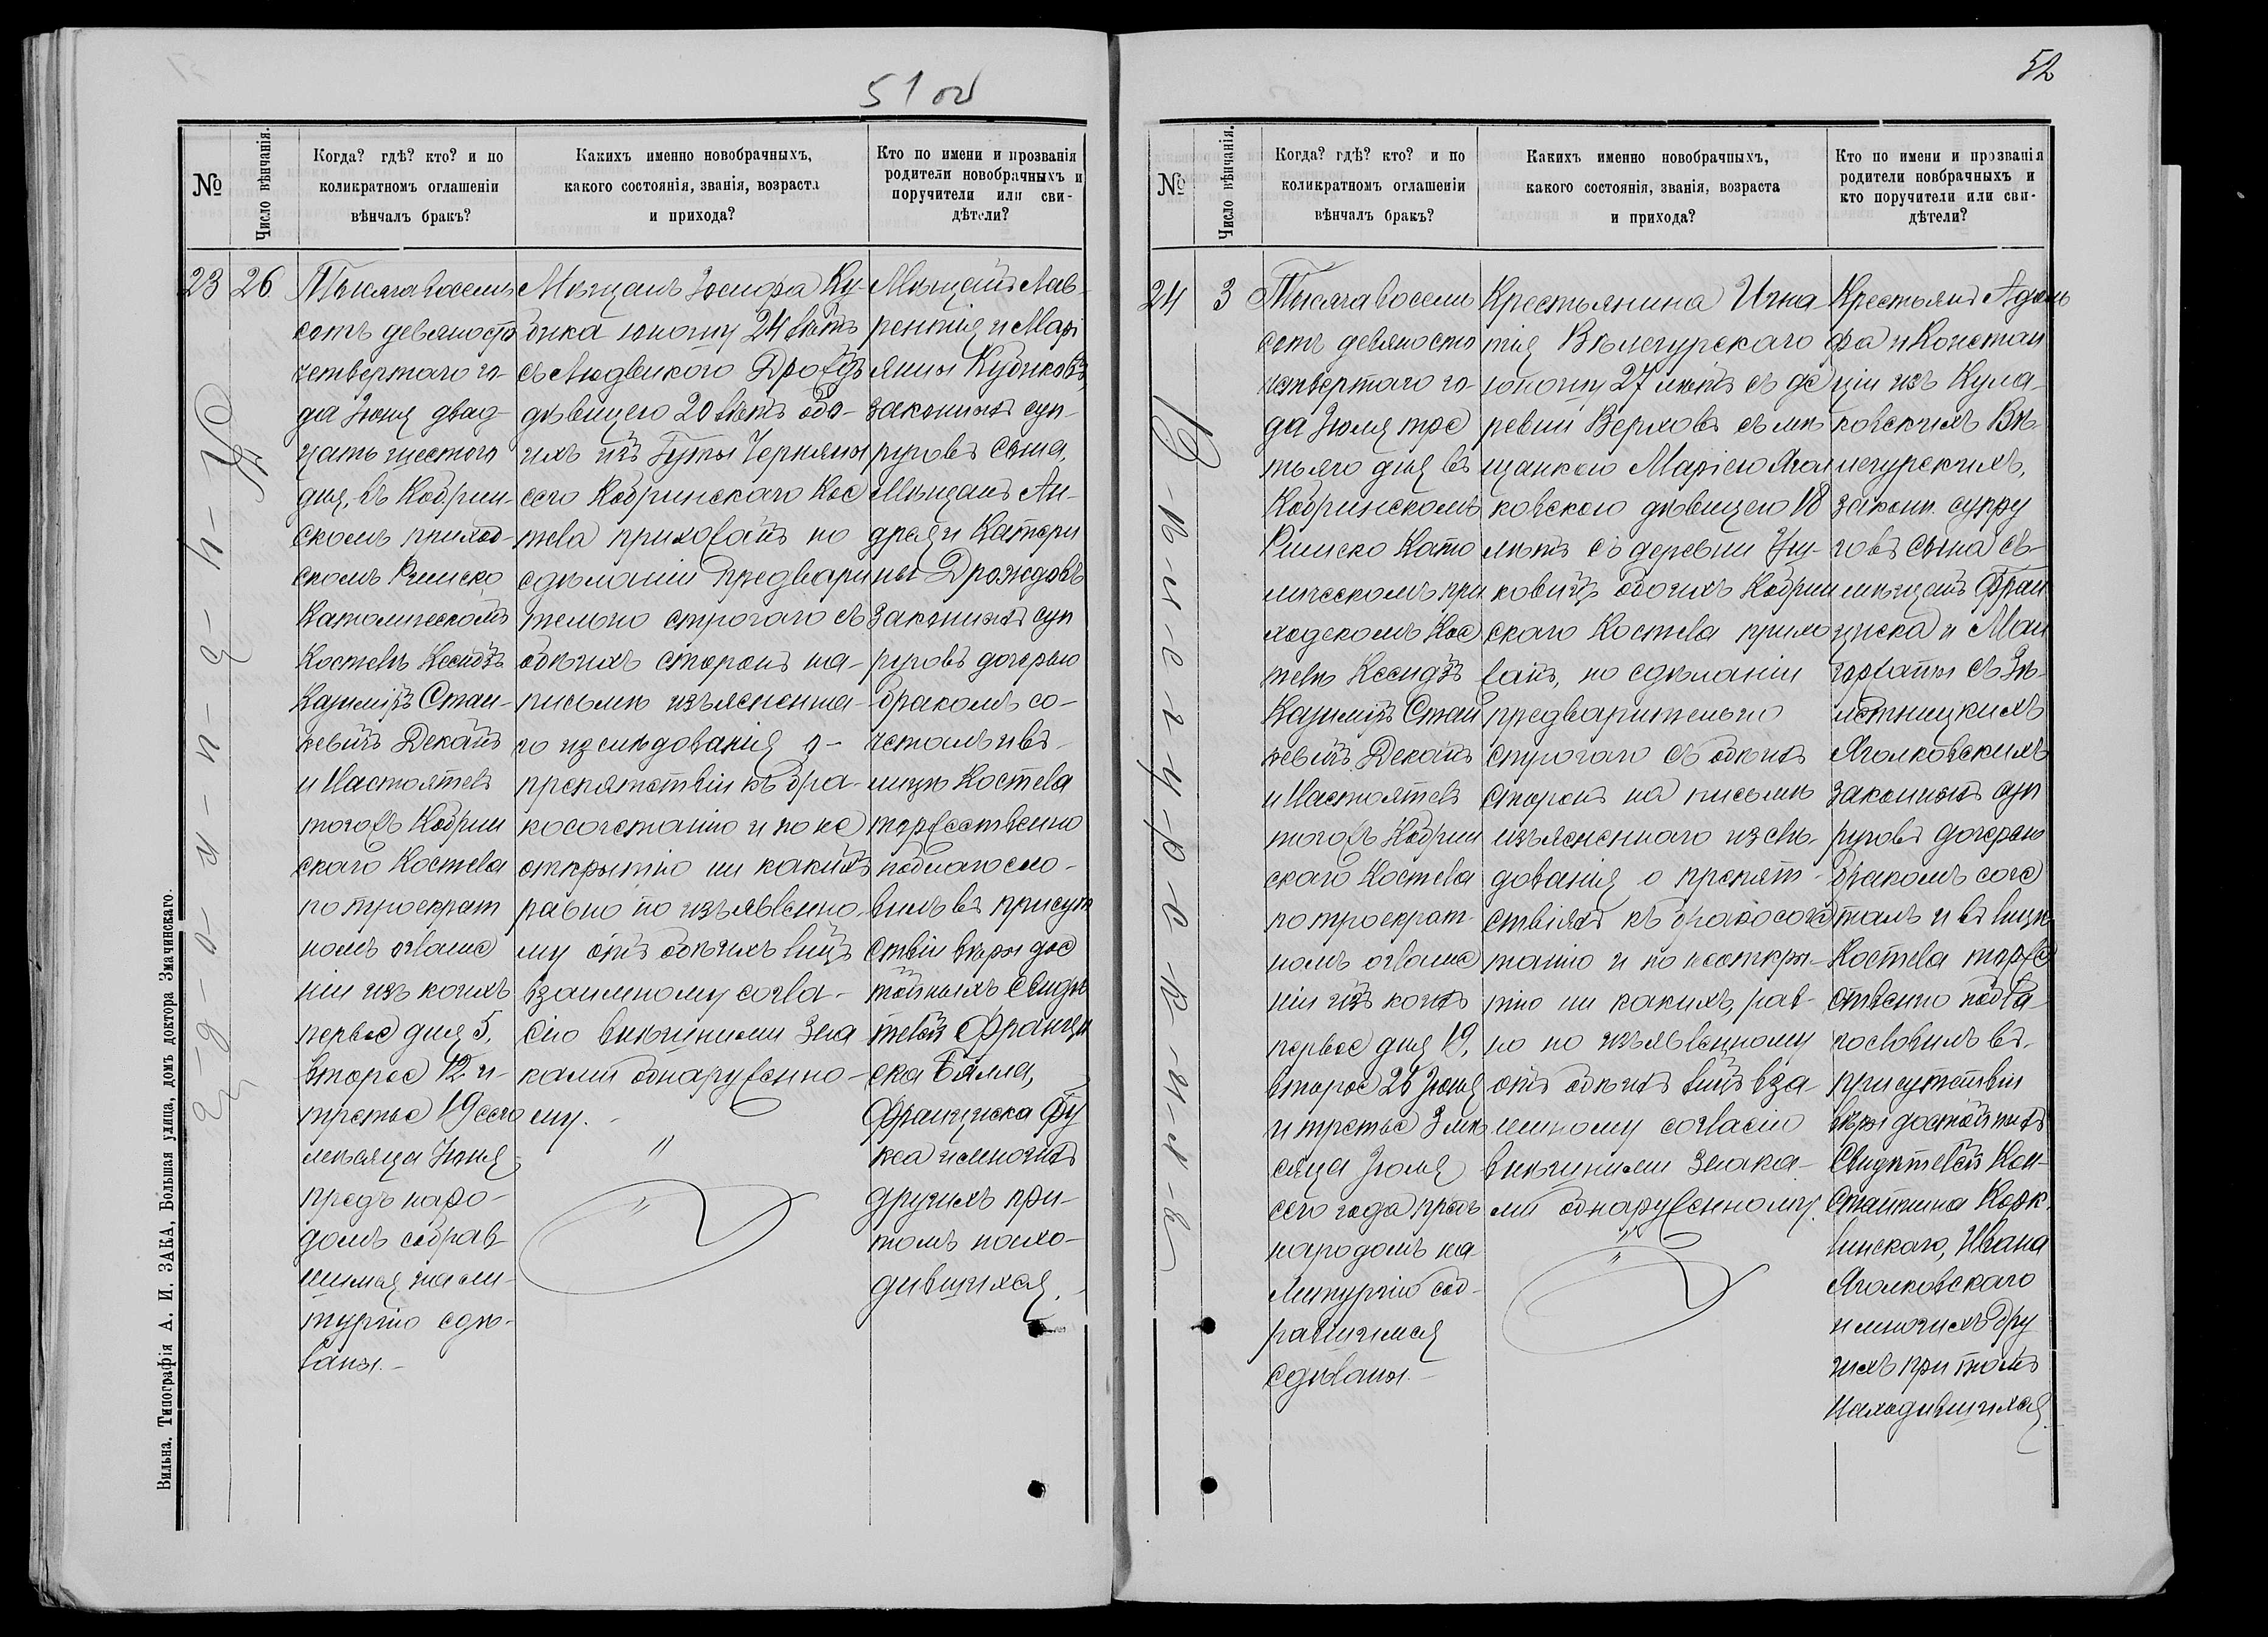 51 об
№
Число вѣнчанія.
Когда? гдѣ? кто? и по
коликратномъ оглашеніи
вѣнчалъ бракъ?
Какихъ именно новобрачныхъ,
какого состоянія, званія, возраста
и прихода?
Кто по имени и прозванія
родители новобрачныхъ и
поручители или сви-
дѣтели?
23
26
Тысяча восемь
сотъ девяносто
четвертаго го-
да Іюня двад-
цать шестого
дня, въ Кобрин-
скомъ приход-
скомъ Римско
Католическомъ
Костелѣ Ксендзъ
Казиміръ Стан-
кевичъ Деканъ
и Настоятель
тогожъ Кобрин
скаго Костела
по троекрат
номъ оглаше
ніи изъ коихъ
первое дня 5,
второе 12 и-
третье 19 сего
мѣсяца Іюня
предъ наро-
домъ собрав
шимся на ли-
тургію сдѣ-
ланы.-
Мѣщанъ Іосифа Ку-
бика юношу 24 лѣтъ
съ Людвикою Дроздъ
дѣвицею 20 лѣтъ обо-
ихъ изъ Гуты Черняны
сего Кобринскаго Кос
тела прихожанъ по
сдѣланіи предвари
тельно строгаго съ
обѣихъ сторонъ на-
письмѣ изъясненна-
го изслѣдованія о-
препятствіи къ бра-
косочетанію и по не
открытію ни какихъ
равно по изъявленно-
му отъ обѣихъ лицъ
взаимному согла-
сію внѣшними зна
ками обнаруженно-
му.-
Мѣщанъ Лав-
рентія и Марі
янны Кубиковъ,
законныхъ суп-
руговъ сына,
Мѣщанъ Ан-
дрея и Катери
ны Дроздовъ
законныхъ суп
руговъ дочерью
бракомъ со-
четалъ и въ
лицѣ Костела
торжественно
поблагосло-
вилъ въ присут
ствіи вѣры дос
тойныхъ Свидѣ
телей Францы
ска Бялла,
Францыска Фу
кса и многихъ
другихъ при-
томъ нахо-
дившихся.-
Вильна. Типографія А. И. ЗАКА, Большая улица, домъ доктора Змачинскаго.
52
№
Число вѣнчанія.
Когда? гдѣ? кто? и по
коликратномъ оглашеніи
вѣнчалъ бракъ?
Какихъ именно новобрачныхъ,
какого состоянія, званія, возраста
и прихода?
Кто по имени и прозванія
родители новбрачныхъ и
кто поручители или сви-
дѣтели?
24
3
Тысяча восемь
сотъ девяносто
четвертаго го-
да Іюля тре
тьяго дня въ
Кобринскомъ
Римско Като
лическомъ при
ходскомъ Кос
телѣ Ксендзъ
Казиміръ Стан
кевичъ Деканъ
и Настоятель
тогожъ Кобрин
скаго Костела
по троекрат-
номъ оглаше
ніи изъ коихъ
первое дня 19,
второе 26 Іюня
и третье 3 мѣ
сяца Іюля
сего года предъ
народомъ на
Литургію соб-
равшимся
сдѣланы.-
Крестьянина Игна-
тія Вѣлегурскаго
юношу 27 лѣтъ съ де
ревни Верховъ съ мѣ
щанкою Маріею Ягол
ковскою дѣвицею 18
лѣтъ съ деревни
обоихъ Кобрин
скаго Костела прихо
жанъ, по сдѣланіи
предварительно
строгаго съ обѣихъ
сторонъ на письмѣ
изъясненнаго изслѣ-
дованія о препят-
ствіяхъ къ бракосоче
танію и по неоткры-
тію ни какихъ, рав-
но по изъявленному
отъ обѣихъ лицъ вза-
имному согласію
внѣшними знака-
ми обнаруженному.
Крестьянъ Адоль
фа и Констан
ціи изъ Кула-
ковскихъ Вѣ-
легурскихъ,
закон. супру
говъ сына съ-
мѣщанъ Фран
циска и Мал
горжаты съ
Яголковскихъ
законныхъ суп
руговъ дочерью
бракомъ соче
талъ и въ лицѣ
Костела торже
ственно побла
гословилъ въ
присутствіи
вѣры достойныхъ
Свидѣтелей Кон-
стантина
Ивана
Яголковскаго
и многихъ дру
гихъ при томъ
находившихся.